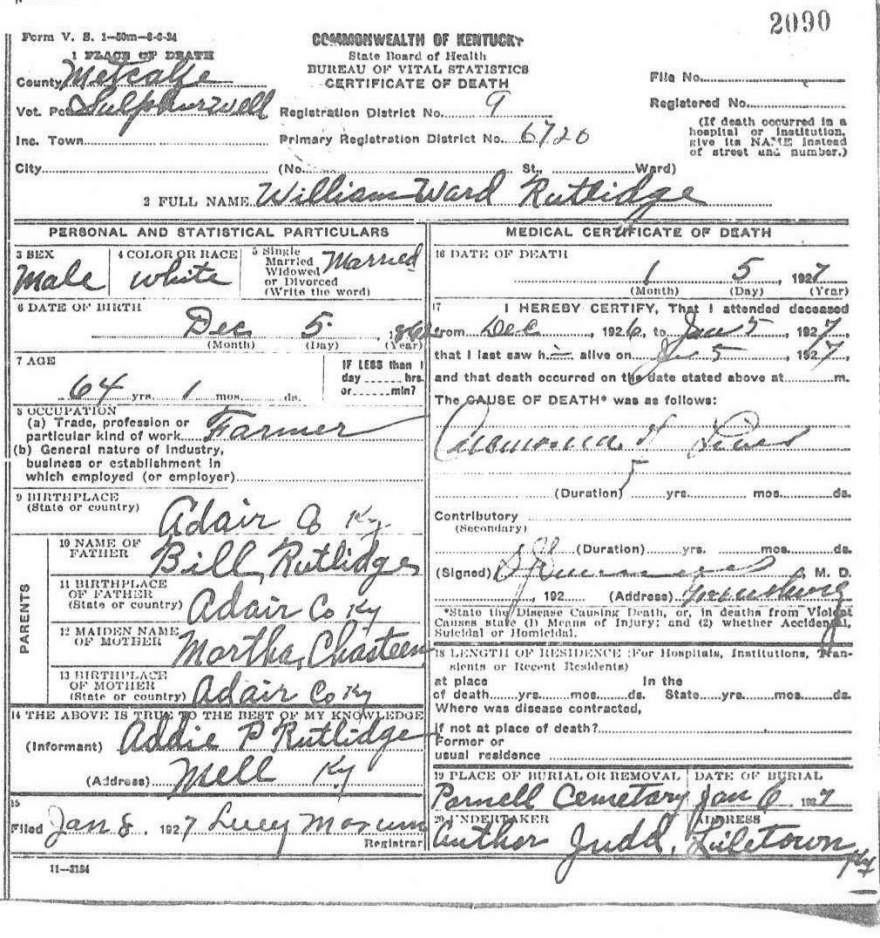 2090
Form V. S. 1—50m—8-6-24
COMMONWEALTH OF KENTUCKY
State Board of Health
BUREAU OF VITAL STATISTICS
CERTIFICATE OF DEATH
1 PLACE OF DEATH
County Metcalfe
Vot. Pct Sulphurwell
Inc. Town
City
Registration District No. 9
Primary Registration District No. 6720
(No. St., Ward)
File No.
Registered No.
(If death occurred in a
hospital or institution,
give its NAME instead
of street and number.)
2 FULL NAME William Ward Rutlidge
PERSONAL AND STATISTICAL PARTICULARS
3 SEX
Male
4 COLOR OR RACE
White
5 Single
Married
Widowed
or Divorced
(Write the word)
Married
6 DATE OF BIRTH
Dec 5, 1862
(Month) (Day) (Year)
7 AGE
64 yrs. 1 mos. ds.
IF LESS than 1
day hrs.
or min?
8 OCCUPATION
(a) Trade, profession or
particular kind of work Farmer
(b) General nature of industry,
business or establishment in
which employed (or employer)
9 BIRTHPLACE
(State or country)
Adair Co Ky.
PARENTS
10 NAME OF
FATHER
Bill Rutlidge
11 BIRTHPLACE
OF FATHER
(State or country)
Adair Co Ky
12 MAIDEN NAME
OF MOTHER
Martha Chasteen
13 BIRTHPLACE
OF MOTHER
(State or country)
Adair Co Ky
14 THE ABOVE IS TRUE TO THE BEST OF MY KNOWLEDGE
(Informant) Addie P Rutlidge
(Address) Mell Ky
15
Filed Jan 8. 1927 Lucy
Registrar
11—3184
MEDICAL CERTIFICATE OF DEATH
16 DATE OF DEATH
1 5, 1927
(Month) (Day) (Year)
17 I HEREBY CERTIFY, That I attended deceased
from Dec, 1926, to Jan 5, 1927,
that I last saw h alive on 5, 1927
and that death occurred on the date stated above at m.
The CAUSE OF DEATH* was as follows:
(Duration) yrs. mos. ds.
Contributory
(Secondary)
(Duration) yrs. mos. ds.
(Signed) M. D.
, 192 (Address) Greensburg
*State the Disease Causing Death, or, in deaths from Violent
Causes state (1) Means of Injury; and (2) whether Accidental,
Suicidal or Homicidal.
18 LENGTH OF RESIDENCE (For Hospitals, Institutions, Tran-
sients or Recent Residents)
at place In the
of death yrs. mos. ds. State yrs. mos. ds.
Where was disease contracted,
if not at place of death?
Former or
usual residence
19 PLACE OF BURIAL OR REMOVAL
Parnell Cemetary
DATE OF BURIAL
Jan 6 1927
20 UNDERTAKER
Auther Judd,
ADDRESS
Liletown Ky